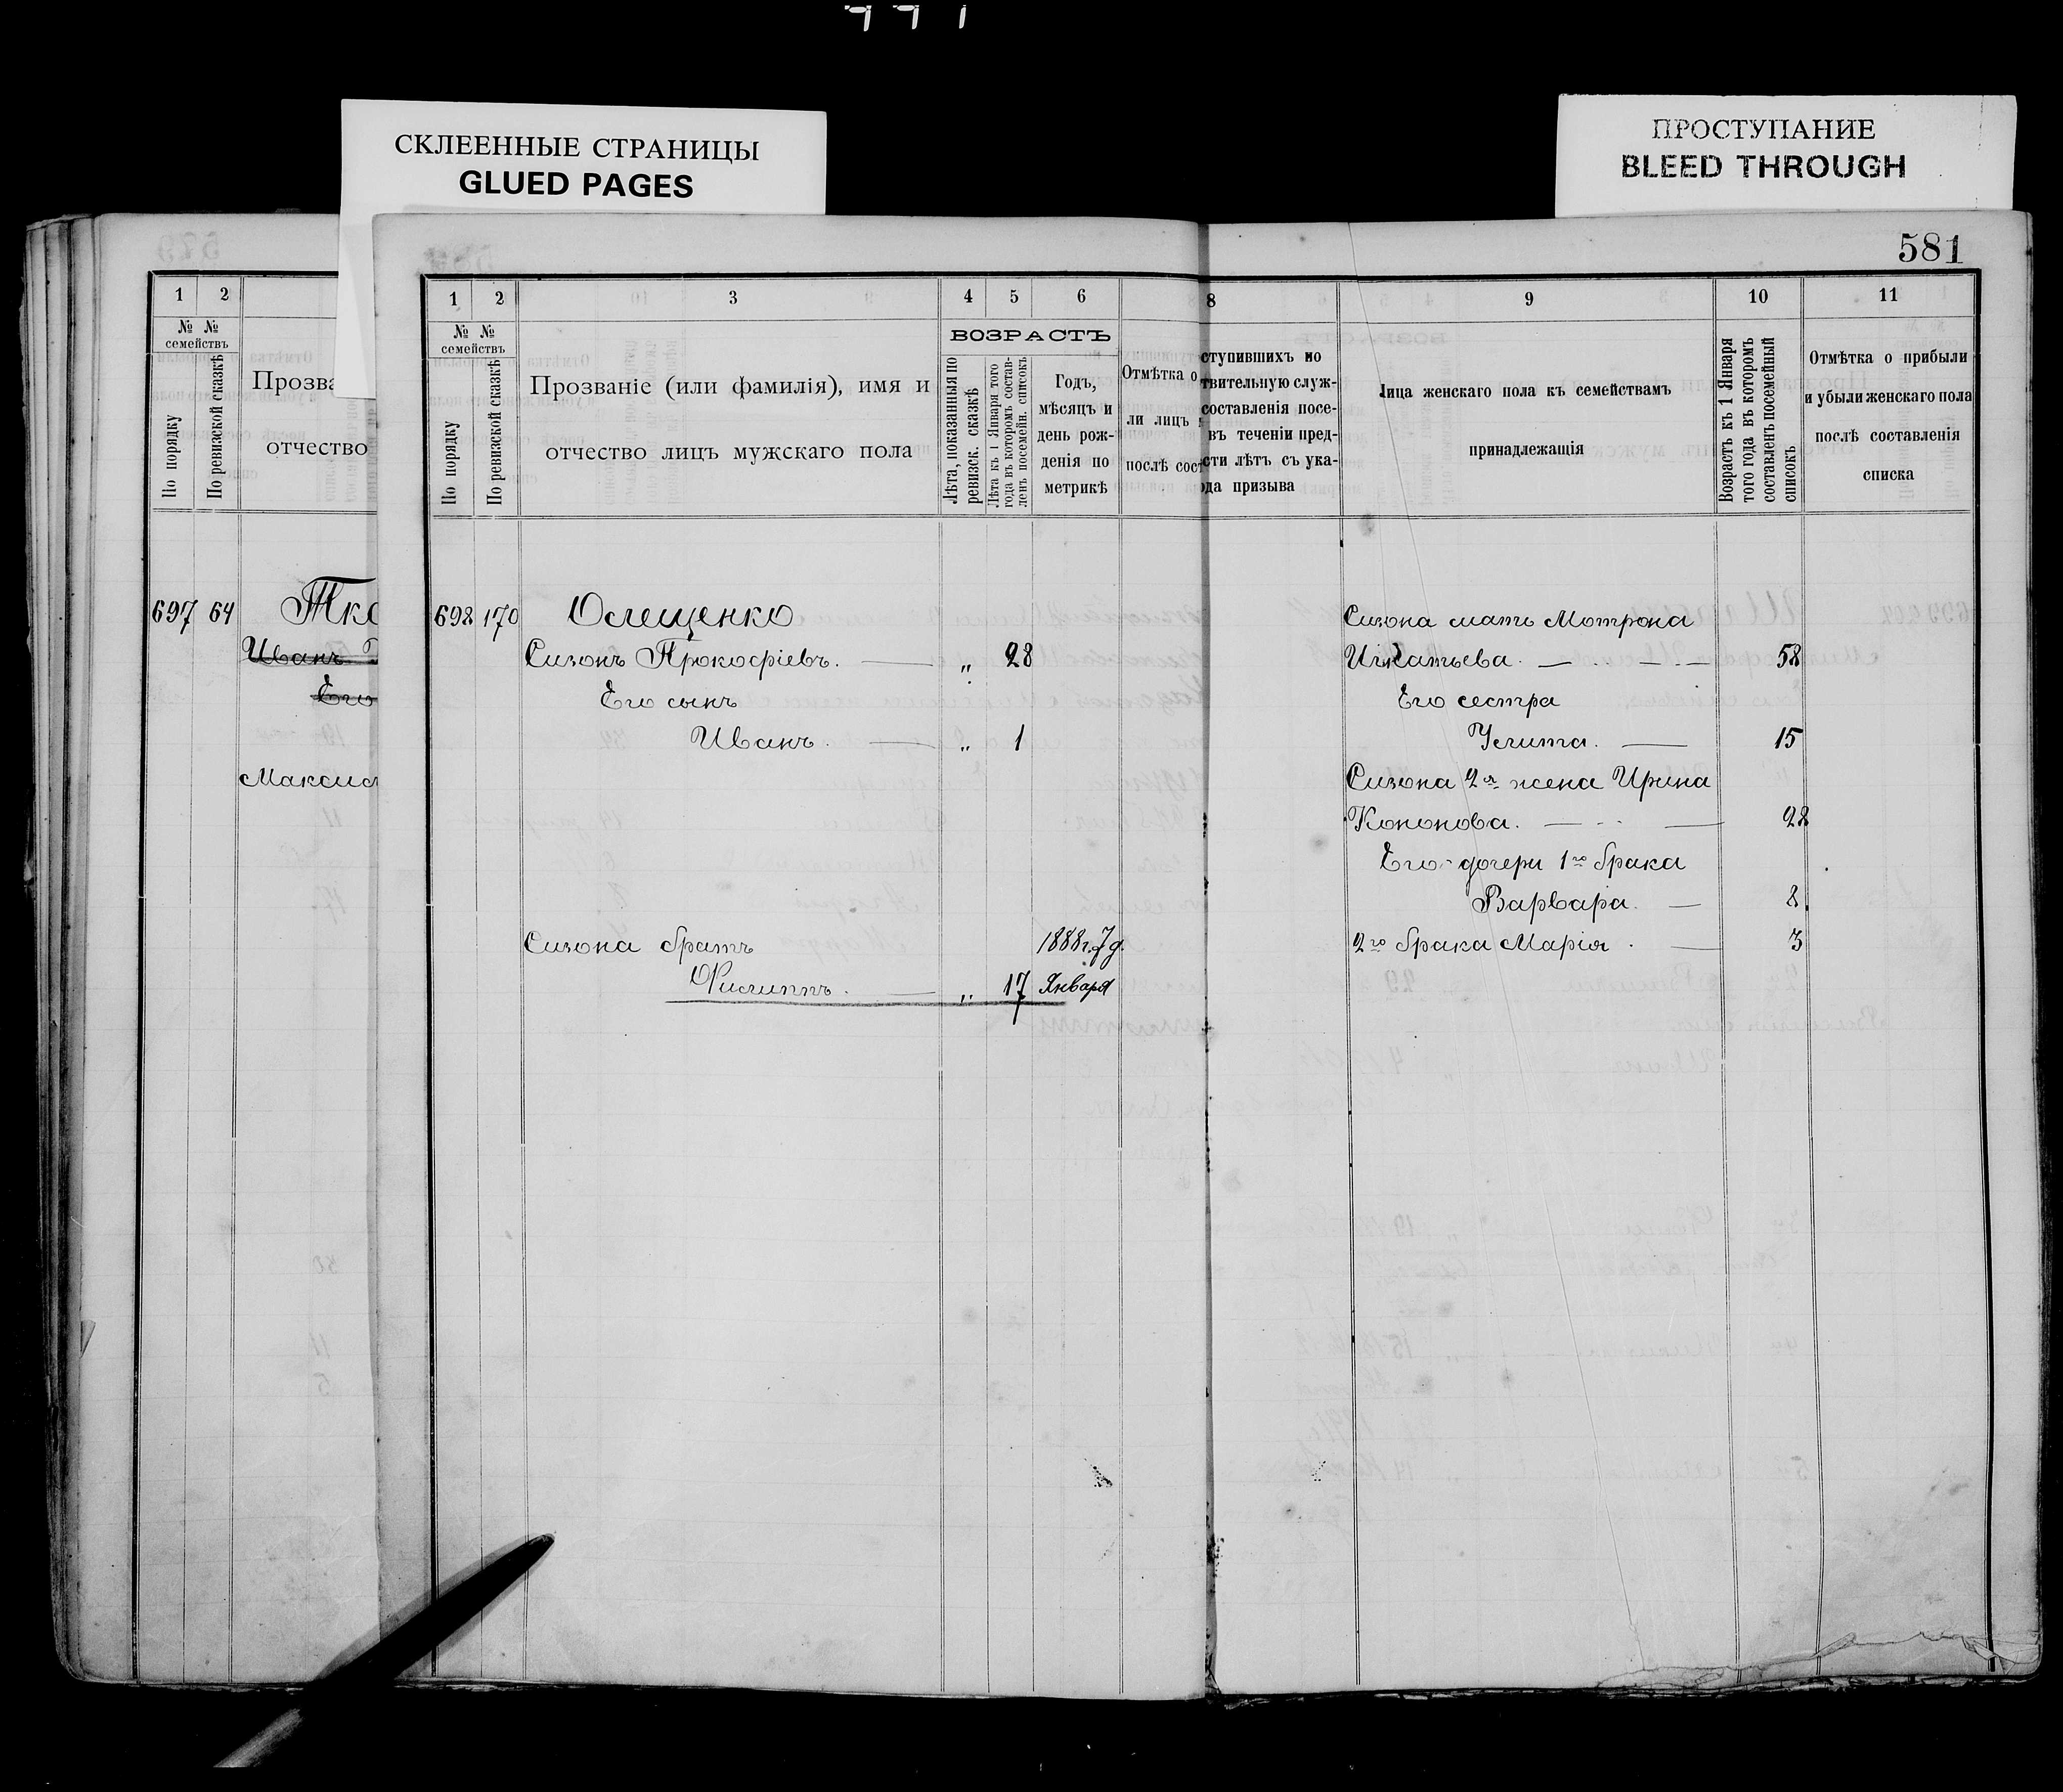 СКЛЕЕННЫЕ СТРАНИЦЫ
GLUED PAGES
ПРОСТУПАНИЕ
BLEED THROUGH
581
1 2
№ № семействъ
По порядку
По ревизской сказкѣ
Прозва
отчество
697 64 Тко
Иванъ
Его
Максим
1 2 3 4 5 6
№ № семействъ
По порядку
По ревизской сказкѣ
Прозваніе (или фамилія), имя и
отчество лицъ мужскаго пола
ВОЗРАСТЪ
Лѣта, показанныя по
ревизск. сказкѣ
Лѣта къ 1 Января того
года въ которомъ состав-
ленъ посемейн. списокъ
Годъ,
мѣсяцъ и
день рож-
денія по
метрикѣ
Отмѣтка о
ли лицъ
послѣ сост
8 9 10 11
ступившихъ по
твительную служ-
составленія посе-
въ теченіи пред-
сти лѣтъ съ ука-
да призыва
Лица женскаго пола къ семействамъ
принадлежащія
Возрастъ къ 1 Января
того года въ которомъ
составленъ посемейный
списокъ
Отмѣтка о прибыли
и убыли женскаго пола
послѣ составленія
списка
698 170 Олещенко
Сизонъ Прокофіевъ. — „ 28
Его сынъ
Иванъ. — „ 1
Сизона братъ 1888 г. 7 д.
Филиппъ. — „ 17 Января
Сизона мать Мотрона
Игнатьева. — 58
Его сестра
Улита. — 15
Сизона 2я жена Ирина
Кононова. — 28
Его дочери 1го брака
Варвара. — 8
2го брака Марія. — 3